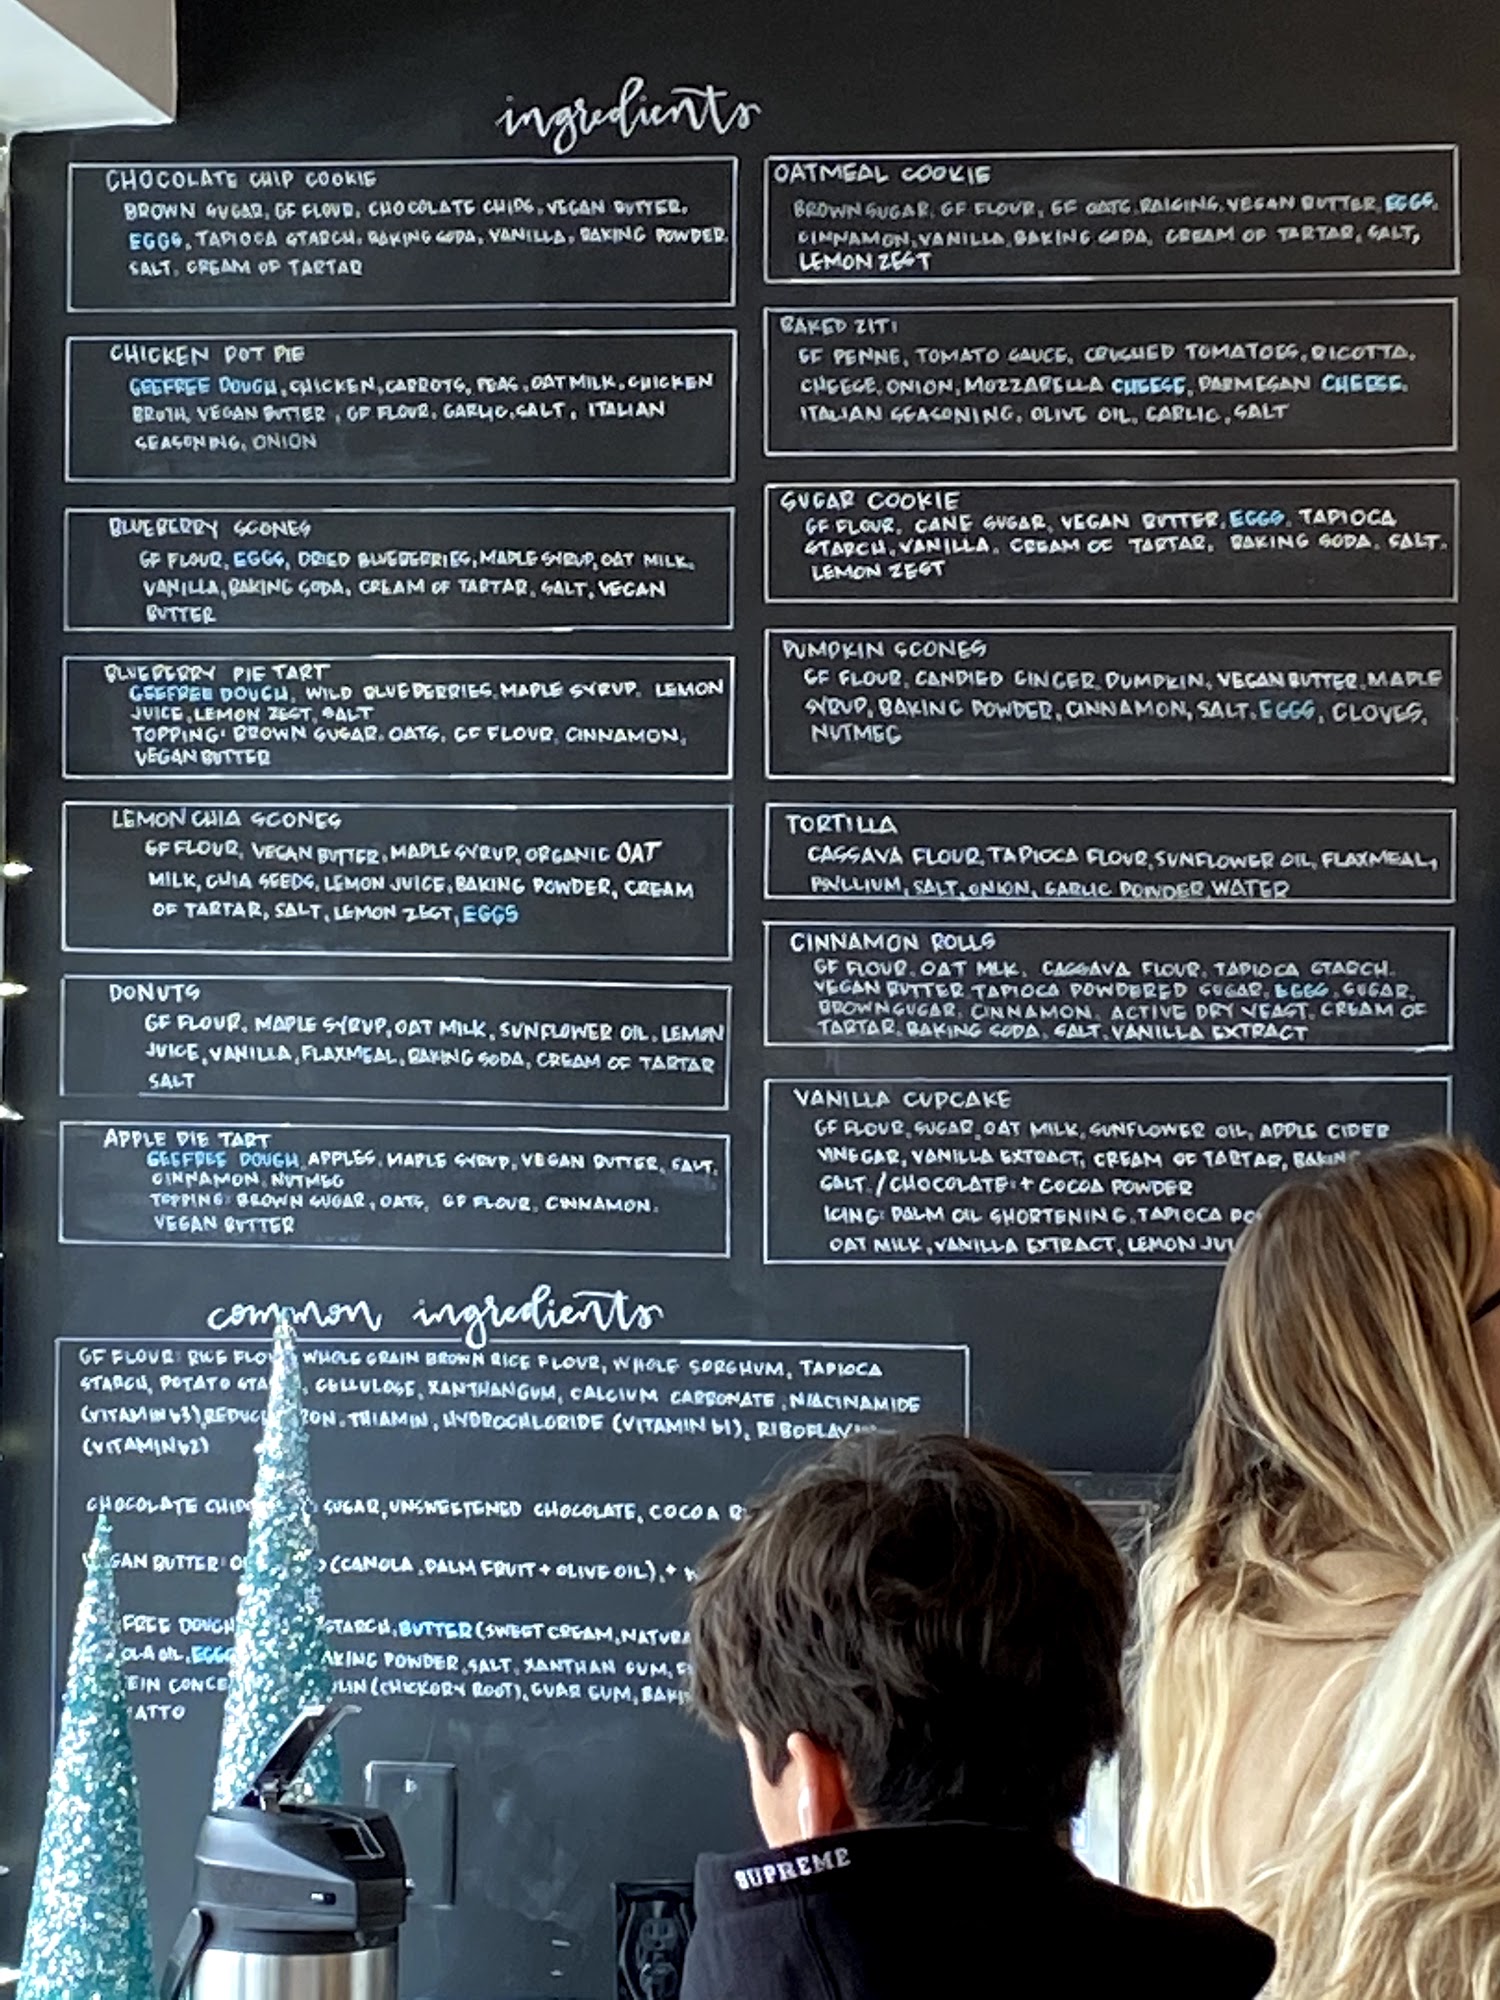 ingredients
CHOCOLATE CHIP COOKIE
BROWN SUGAR, GF FLOUR, CHOCOLATE CHIPS, VEGAN BUTTER,
EGGS, TAPIOCA STARCH, BAKING SODA, VANILLA, BAKING POWDER
SALT, CREAM OF TARTAR
CHICKEN POT PIE
GEEFREE DOUGH, CHICKEN, CARROTS, PEAS, OATMILK, CHICKEN
BROTH, VEGAN BUTTER, GF FLOUR, GARLIC, SALT, ITALIAN
SEASONING, ONION
BLUEBERRY SCONES
GF FLOUR, EGGS, DRIED BLUEBERRIES, MAPLE SYRUP, OAT MILK,
VANILLA, BAKING SODA, CREAM OF TARTAR, SALT, VEGAN
BUTTER
BLUEBERRY PIE TART
GEEFREE DOUGH, WILD BLUEBERRIES, MAPLE SYRUP, LEMON
JUICE, LEMON ZEST, SALT
TOPPING: BROWN SUGAR, OATS, GF FLOUR, CINNAMON,
VEGAN BUTTER
LEMON CHIA SCONES
GF FLOUR, VEGAN BUTTER, MAPLE SYRUP, ORGANIC OAT
MILK, CHIA SEEDS, LEMON JUICE, BAKING POWDER, CREAM
OF TARTAR, SALT, LEMON ZEST, EGGS
DONUTS
GF FLOUR, MAPLE SYRUP, OAT MILK, SUNFLOWER OIL, LEMON
JUICE, VANILLA, FLAXMEAL, BAKING SODA, CREAM OF TARTAR
SALT
APPLE PIE TART
GEEFREE DOUGH, APPLES, MAPLE SYRUP, VEGAN BUTTER, SALT,
CINNAMON, NUTMEG
TOPPING: BROWN SUGAR, OATS, GF FLOUR, CINNAMON,
VEGAN BUTTER
OATMEAL COOKIE
BROWN SUGAR, GF FLOUR, GF OATS, RAISINS, VEGAN BUTTER, EGGS,
CINNAMON, VANILLA, BAKING SODA, CREAM OF TARTAR, SALT,
LEMON ZEST
BAKED ZITI
GF PENNE, TOMATO SAUCE, CRUSHED TOMATOES, RICOTTA,
CHEESE, ONION, MOZZARELLA CHEESE, PARMESAN CHEESE,
ITALIAN SEASONING, OLIVE OIL, GARLIC, SALT
SUGAR COOKIE
GF FLOUR, CANE SUGAR, VEGAN BUTTER, EGGS, TAPIOCA
STARCH, VANILLA, CREAM OF TARTAR, BAKING SODA, SALT,
LEMON ZEST
PUMPKIN SCONES
GF FLOUR, CANDIED GINGER, PUMPKIN, VEGAN BUTTER, MAPLE
SYRUP, BAKING POWDER, CINNAMON, SALT, EGGS, CLOVES,
NUTMEG
TORTILLA
CASSAVA FLOUR, TAPIOCA FLOUR, SUNFLOWER OIL, FLAXMEAL,
PSYLLIUM, SALT, ONION, GARLIC POWDER, WATER
CINNAMON ROLLS
GF FLOUR, OAT MLK, CASSAVA FLOUR, TAPIOCA STARCH,
VEGAN BUTTER, TAPIOCA POWDERED SUGAR, EGGS, SUGAR,
BROWN SUGAR, CINNAMON, ACTIVE DRY YEAST, CREAM OF
TARTAR, BAKING SODA, SALT, VANILLA EXTRACT
VANILLA CUPCAKE
GF FLOUR, SUGAR, OAT MILK, SUNFLOWER OIL, APPLE CIDER
VINEGAR, VANILLA EXTRACT, CREAM OF TARTAR, BAKING
SALT / CHOCOLATE: + COCOA POWDER
ICING: PALM OIL SHORTENING, TAPIOCA
OAT MILK, VANILLA EXTRACT, LEMON
common ingredients
GF FLOUR: RICE WHOLE GRAIN BROWN RICE FLOUR, WHOLE SORGHUM, TAPIOCA
STARCH, POTATO CELLULOSE, XANTHAN GUM, CALCIUM CARBONATE, NIACINAMIDE
(VITAMIN b3), THIAMIN, HYDROCHLORIDE (VITAMIN b1),
(VITAMIN b2)
CHOCOLATE SUGAR, UNSWEETENED CHOCOLATE, COCOA
BUTTER: (CANOLA, PALM FRUIT + OLIVE OIL), +
FREE DOUGH STARCH, BUTTER (SWEET CREAM,
OIL, EGGS POWDER, SALT, XANTHAN GUM,
(CHICKORY ROOT), GUAR GUM,
SUPREME